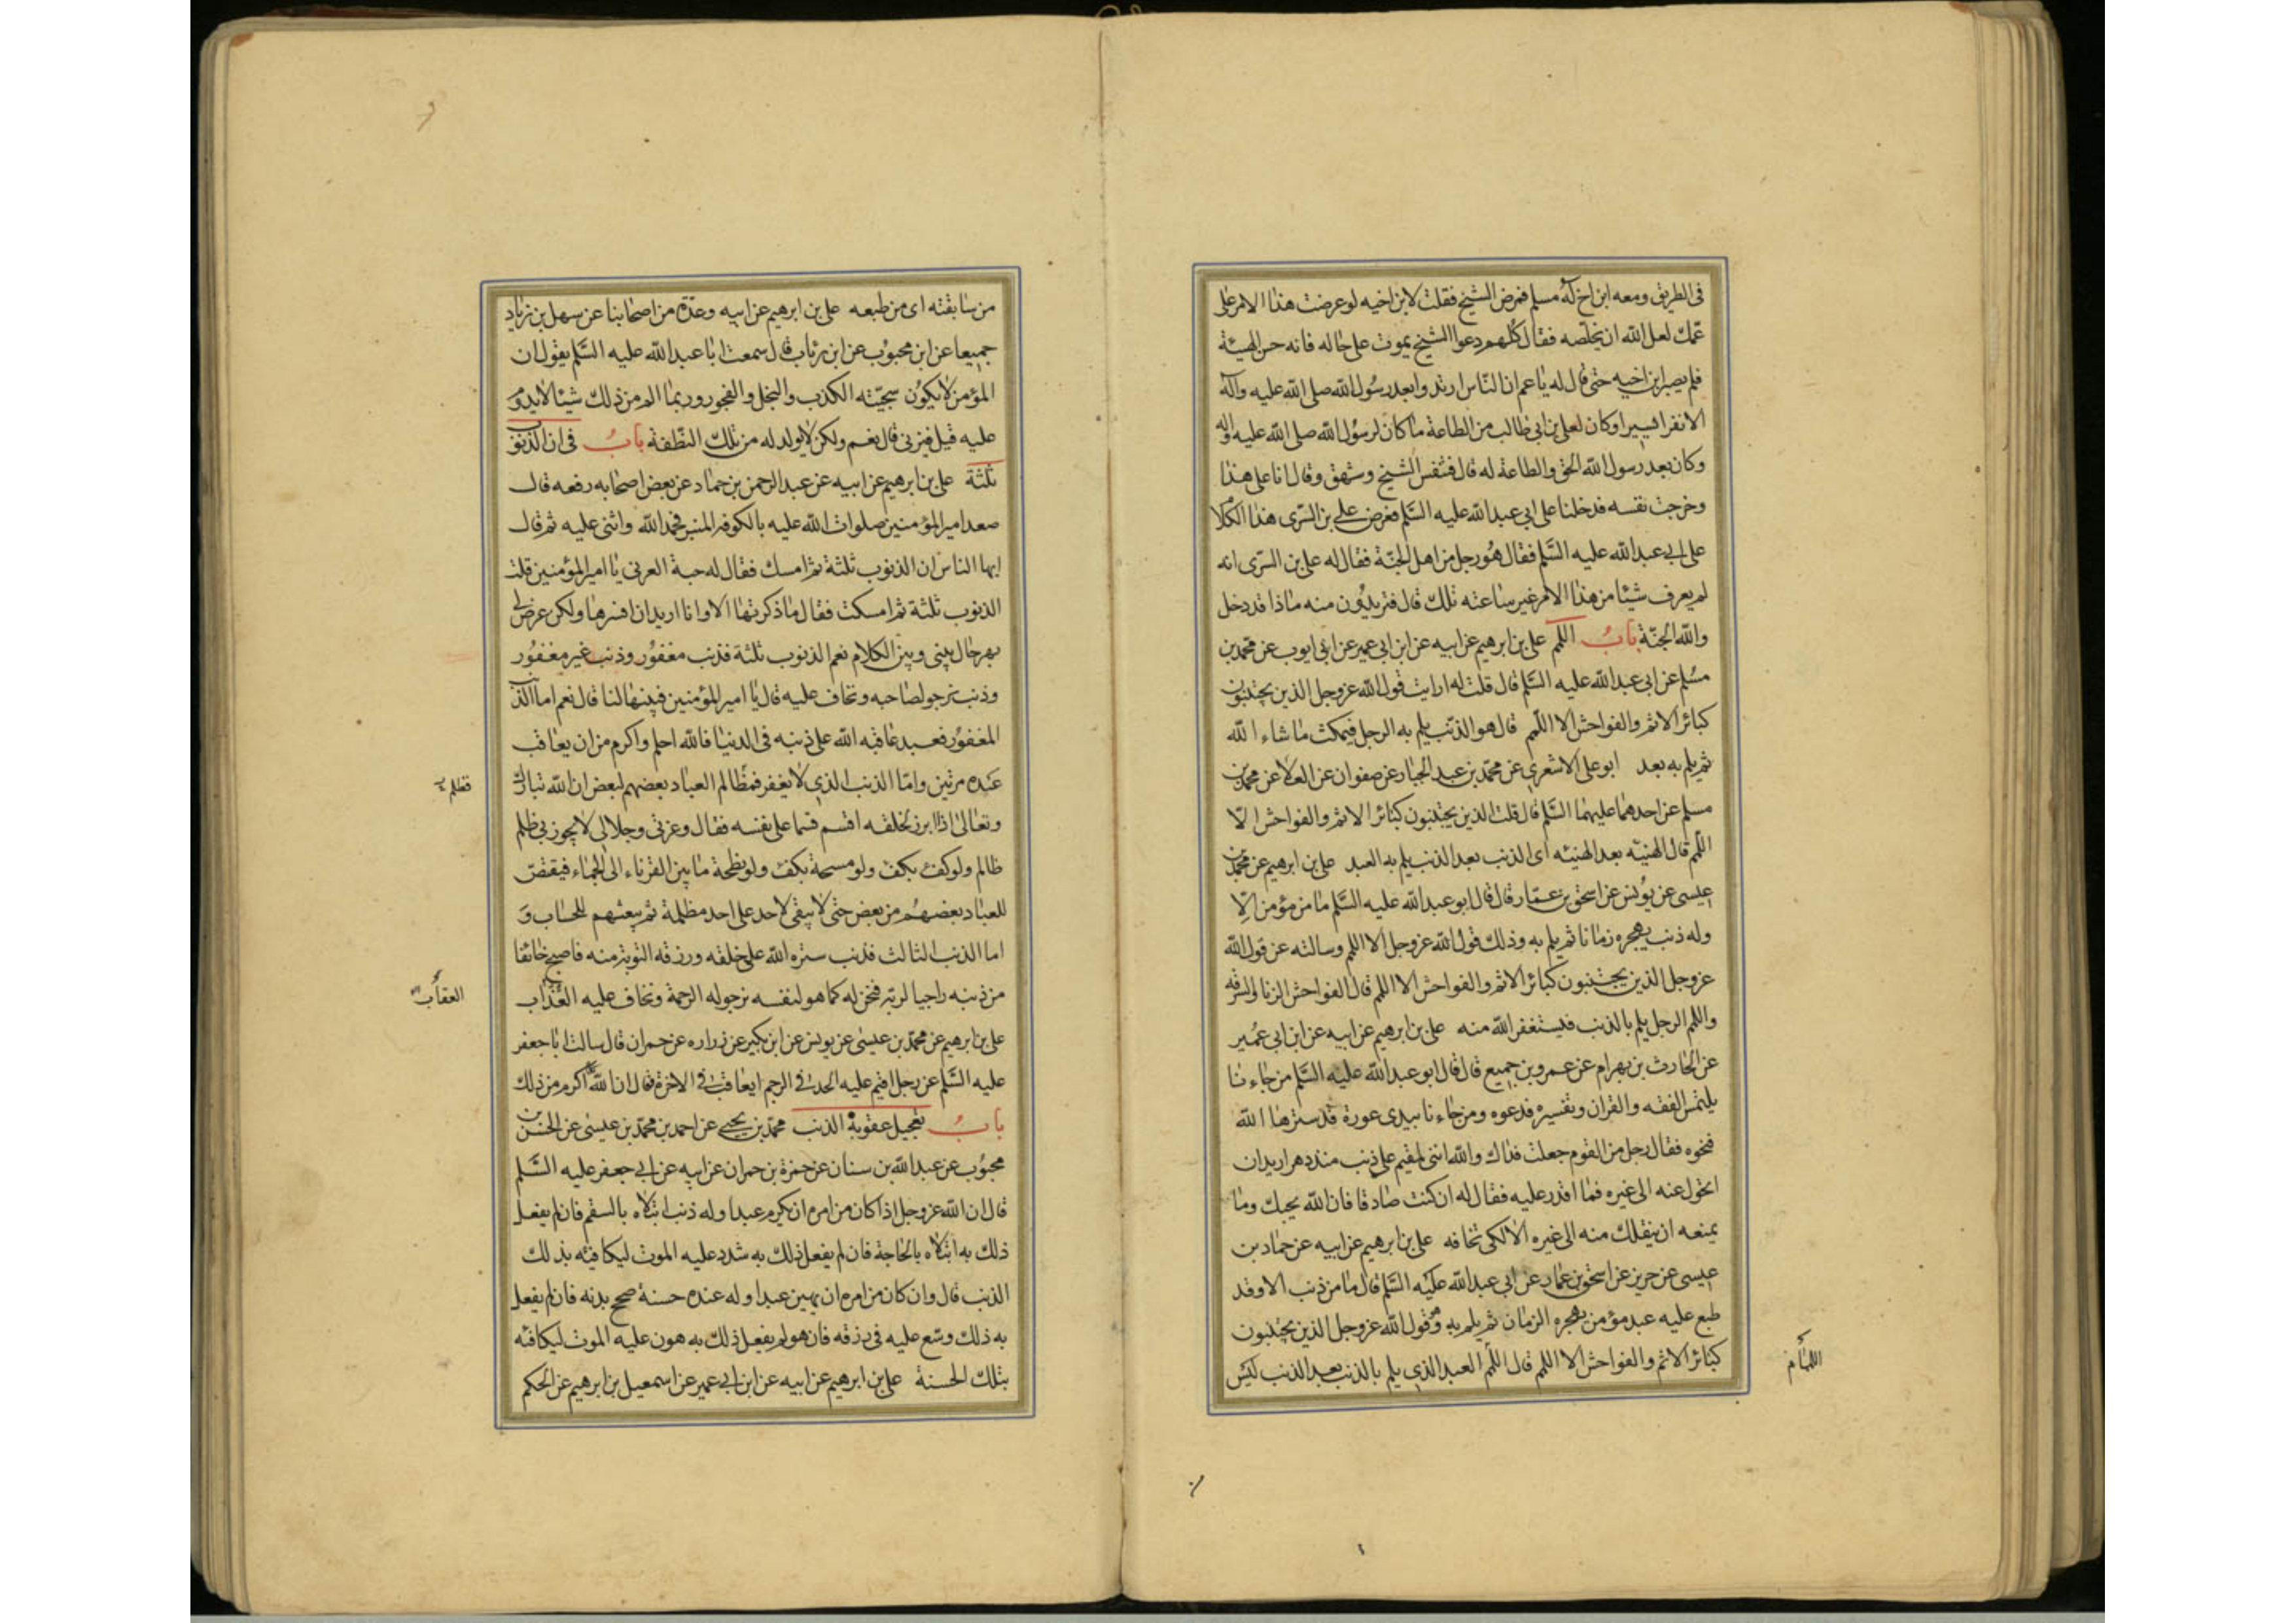 فى الطريق ومعه ابن اخ له مسلم فمرض الشيخ فقلت لابن اخيه لو عرضت هذا الامر على
عمك لعل الله ان يخلصه فقال كلهم دعوا الشيخ يموت على حاله فانه حسن الهيئة
فلم يصبر ابن اخيه حتى قال له يا عم ان الناس ارتدوا بعد رسول الله صلى الله عليه وآله
الا نفرا يسيرا وكان لعلى بن ابى طالب من الطاعة ما كان لرسول الله صلى الله عليه وآله
وكان بعد رسول الله الحق والطاعة له قال فتنفس الشيخ وشهق وقال انا على هذا
وخرجت نفسه فدخلنا على ابى عبد الله عليه السلم فعرض على بن السرى هذا الكلام
على ابى عبد الله عليه السلم فقال هو رجل من اهل الجنة فقال له على بن السرى انه
لم يعرف شيئا من هذا الامر غير ساعته تلك قال فتريدون منه ماذا قد دخل
والله الجنة باب اللمم على بن ابرهيم عن ابيه عن ابن ابى عمير عن ابى ايوب عن محمد بن
مسلم عن ابى عبد الله عليه السلم قال قلت له ارايت قول الله عز وجل الذين يجتنبون
كبائر الاثم والفواحش الا اللمم قال هو الذنب يلم به الرجل فيمكث ما شاء الله
ثم يلم به بعد ابو على الاشعرى عن محمد بن عبد الجبار عن صفوان عن العلا عن محمد بن
مسلم عن احدهما عليهما السلم قال قلت الذين يجتنبون كبائر الاثم والفواحش الا
اللمم قال الهنيئه بعد الهنيئه اى الذنب بعد الذنب يلم به العبد على بن ابرهيم عن محمد بن
عيسى عن يونس عن اسحق بن عمار قال قال ابو عبد الله عليه السلم ما من مؤمن الا
وله ذنب يهجره زمانا ثم يلم به وذلك قول الله عز وجل الا اللمم وسالته عن قول الله
عز وجل الذين يجتنبون كبائر الاثم والفواحش الا اللمم قال الفواحش الزنا والسرقه
واللمم الرجل يلم بالذنب فيستغفر الله منه على بن ابرهيم عن ابيه عن ابن ابى عمير
عن الحارث بن بهرام عن عمرو بن جميع قال قال ابو عبد الله عليه السلم من جاءنا
يلتمس الفقه والقران وتفسيره فدعوه ومن جاءنا يبدى عورة قد سترها الله
فنحوه فقال رجل من القوم جعلت فداك والله اننى لمقيم على ذنب منذ دهر اريد ان
اتحول عنه الى غيره فما اقدر عليه فقال له ان كنت صادقا فان الله يحبك وما
يمنعه ان ينقلك منه الى غيره الا لكى تخافه على بن ابرهيم عن ابيه عن حماد بن
عيسى عن حريز عن اسحق بن عمار عن ابى عبد الله عليه السلم قال ما من ذنب الا وقد
طبع عليه عبد مؤمن يهجره الزمان ثم يلم به وهو قول الله عز وجل الذين يجتنبون
كبائر الاثم والفواحش الا اللمم قال اللمم العبد الذى يلم بالذنب بعد الذنب ليس
اللمام
من سابقته اى من طبعه على بن ابرهيم عن ابيه وعدة من اصحابنا عن سهل بن زياد
جميعا عن ابن محبوب عن ابن رئاب قال سمعت ابا عبد الله عليه السلم يقول ان
المؤمن لا يكون سجيته الكذب والبخل والفجور وربما الم من ذلك شيئا لا يدوم
عليه قيل فيزنى قال نعم ولكن لا يولد له من تلك النطفة باب فى ان الذنوب
ثلثة على بن ابرهيم عن ابيه عن عبد الرحمن بن حماد عن بعض اصحابه رفعه قال
صعد امير المؤمنين صلوات الله عليه بالكوفه المنبر فحمد الله واثنى عليه ثم قال
ايها الناس ان الذنوب ثلثة ثم امسك فقال له حبة العرنى يا امير المؤمنين قلت
الذنوب ثلثة ثم امسكت فقال ما ذكرتها الا وانا اريد ان افسرها ولكن عرض لى
بهر حال بينى وبين الكلام نعم الذنوب ثلثة فذنب مغفور وذنب غير مغفور
وذنب نرجو لصاحبه ونخاف عليه قال يا امير المؤمنين فبينها لنا قال نعم اما الذنب
المغفور فعبد عاقبه الله على ذنبه فى الدنيا فالله احلم واكرم من ان يعاقب
عبده مرتين واما الذنب الذى لا يغفر فمظالم العباد بعضهم لبعض ان الله تبارك
وتعالى اذا برز لخلقه اقسم قسما على نفسه فقال وعزتى وجلالى لا يجوزنى ظلم
ظالم ولو كف بكف ولو مسحة بكف ولو نطحة ما بين القرناء الى الجماء فيقتص
للعباد بعضهم من بعض حتى لا يبقى لاحد على احد مظلمة ثم يبعثهم للحساب و
اما الذنب الثالث فذنب ستره الله على خلقه ورزقه التوبة منه فاصبح خائفا
من ذنبه راجيا لربه فنحن له كما هو لنفسه نرجو له الرحمة ونخاف عليه العذاب
على بن ابرهيم عن محمد بن عيسى عن يونس عن ابن بكير عن زراره عن حمران قال سالت ابا جعفر
عليه السلم عن رجل اقيم عليه الحد فى الرجم ايعاقب فى الاخرة قال ان الله اكرم من ذلك
باب تعجيل عقوبة الذنب محمد بن يحيى عن احمد بن محمد بن عيسى عن الحسن بن
محبوب عن عبد الله بن سنان عن حمزة بن حمران عن ابيه عن ابى جعفر عليه السلم
قال ان الله عز وجل اذا كان من امره ان يكرم عبدا وله ذنب ابتلاه بالسقم فان لم يفعل
ذلك به ابتلاه بالحاجة فان لم يفعل ذلك به شدد عليه الموت ليكافيه بذلك
الذنب قال وان كان من امره ان يهين عبدا وله عنده حسنة صحح بدنه فان لم يفعل
به ذلك وسع عليه فى رزقه فان هو لم يفعل ذلك به هون عليه الموت ليكافئه
بتلك الحسنة على بن ابرهيم عن ابيه عن ابن ابى عمير عن اسمعيل بن ابرهيم عن الحكم
العقاب